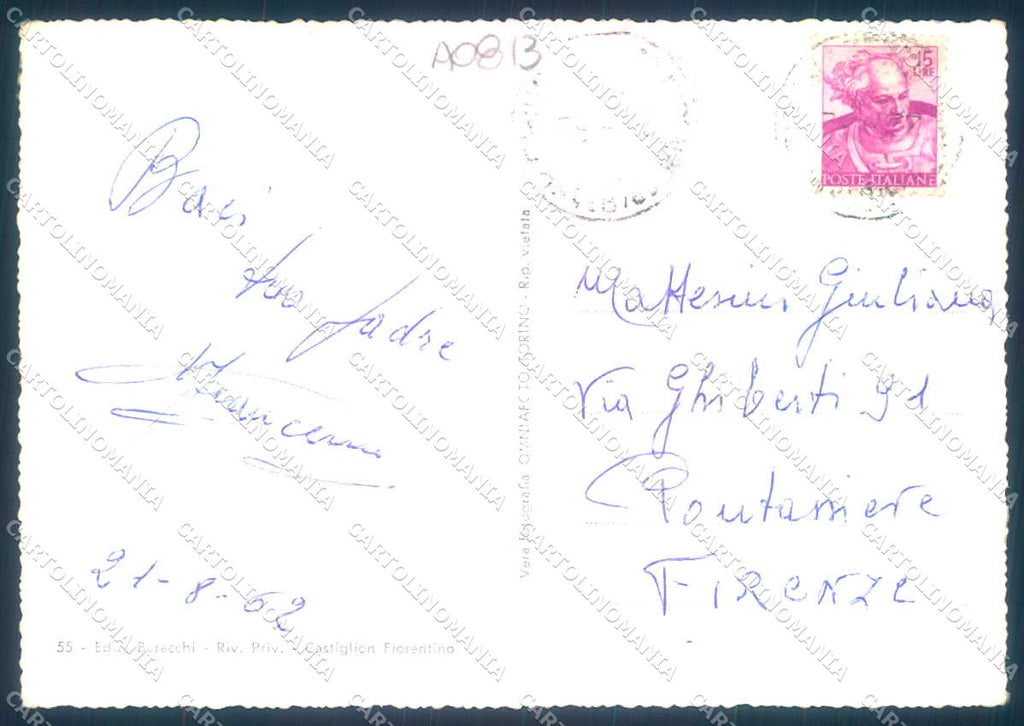 A0813
15
LIRE
POSTE ITALIANE
Baci
tuo padre
21-8-62
55 - Ed. Buracchi - Riv. Priv. - Castiglion Fiorentino
Vera fotografia OMNIAFOTO TORINO - Rip. vietata
Mattesini Giuliana
Via Ghiberti 91
Pontassieve
FIRENZE
CARTOLINOMANIA